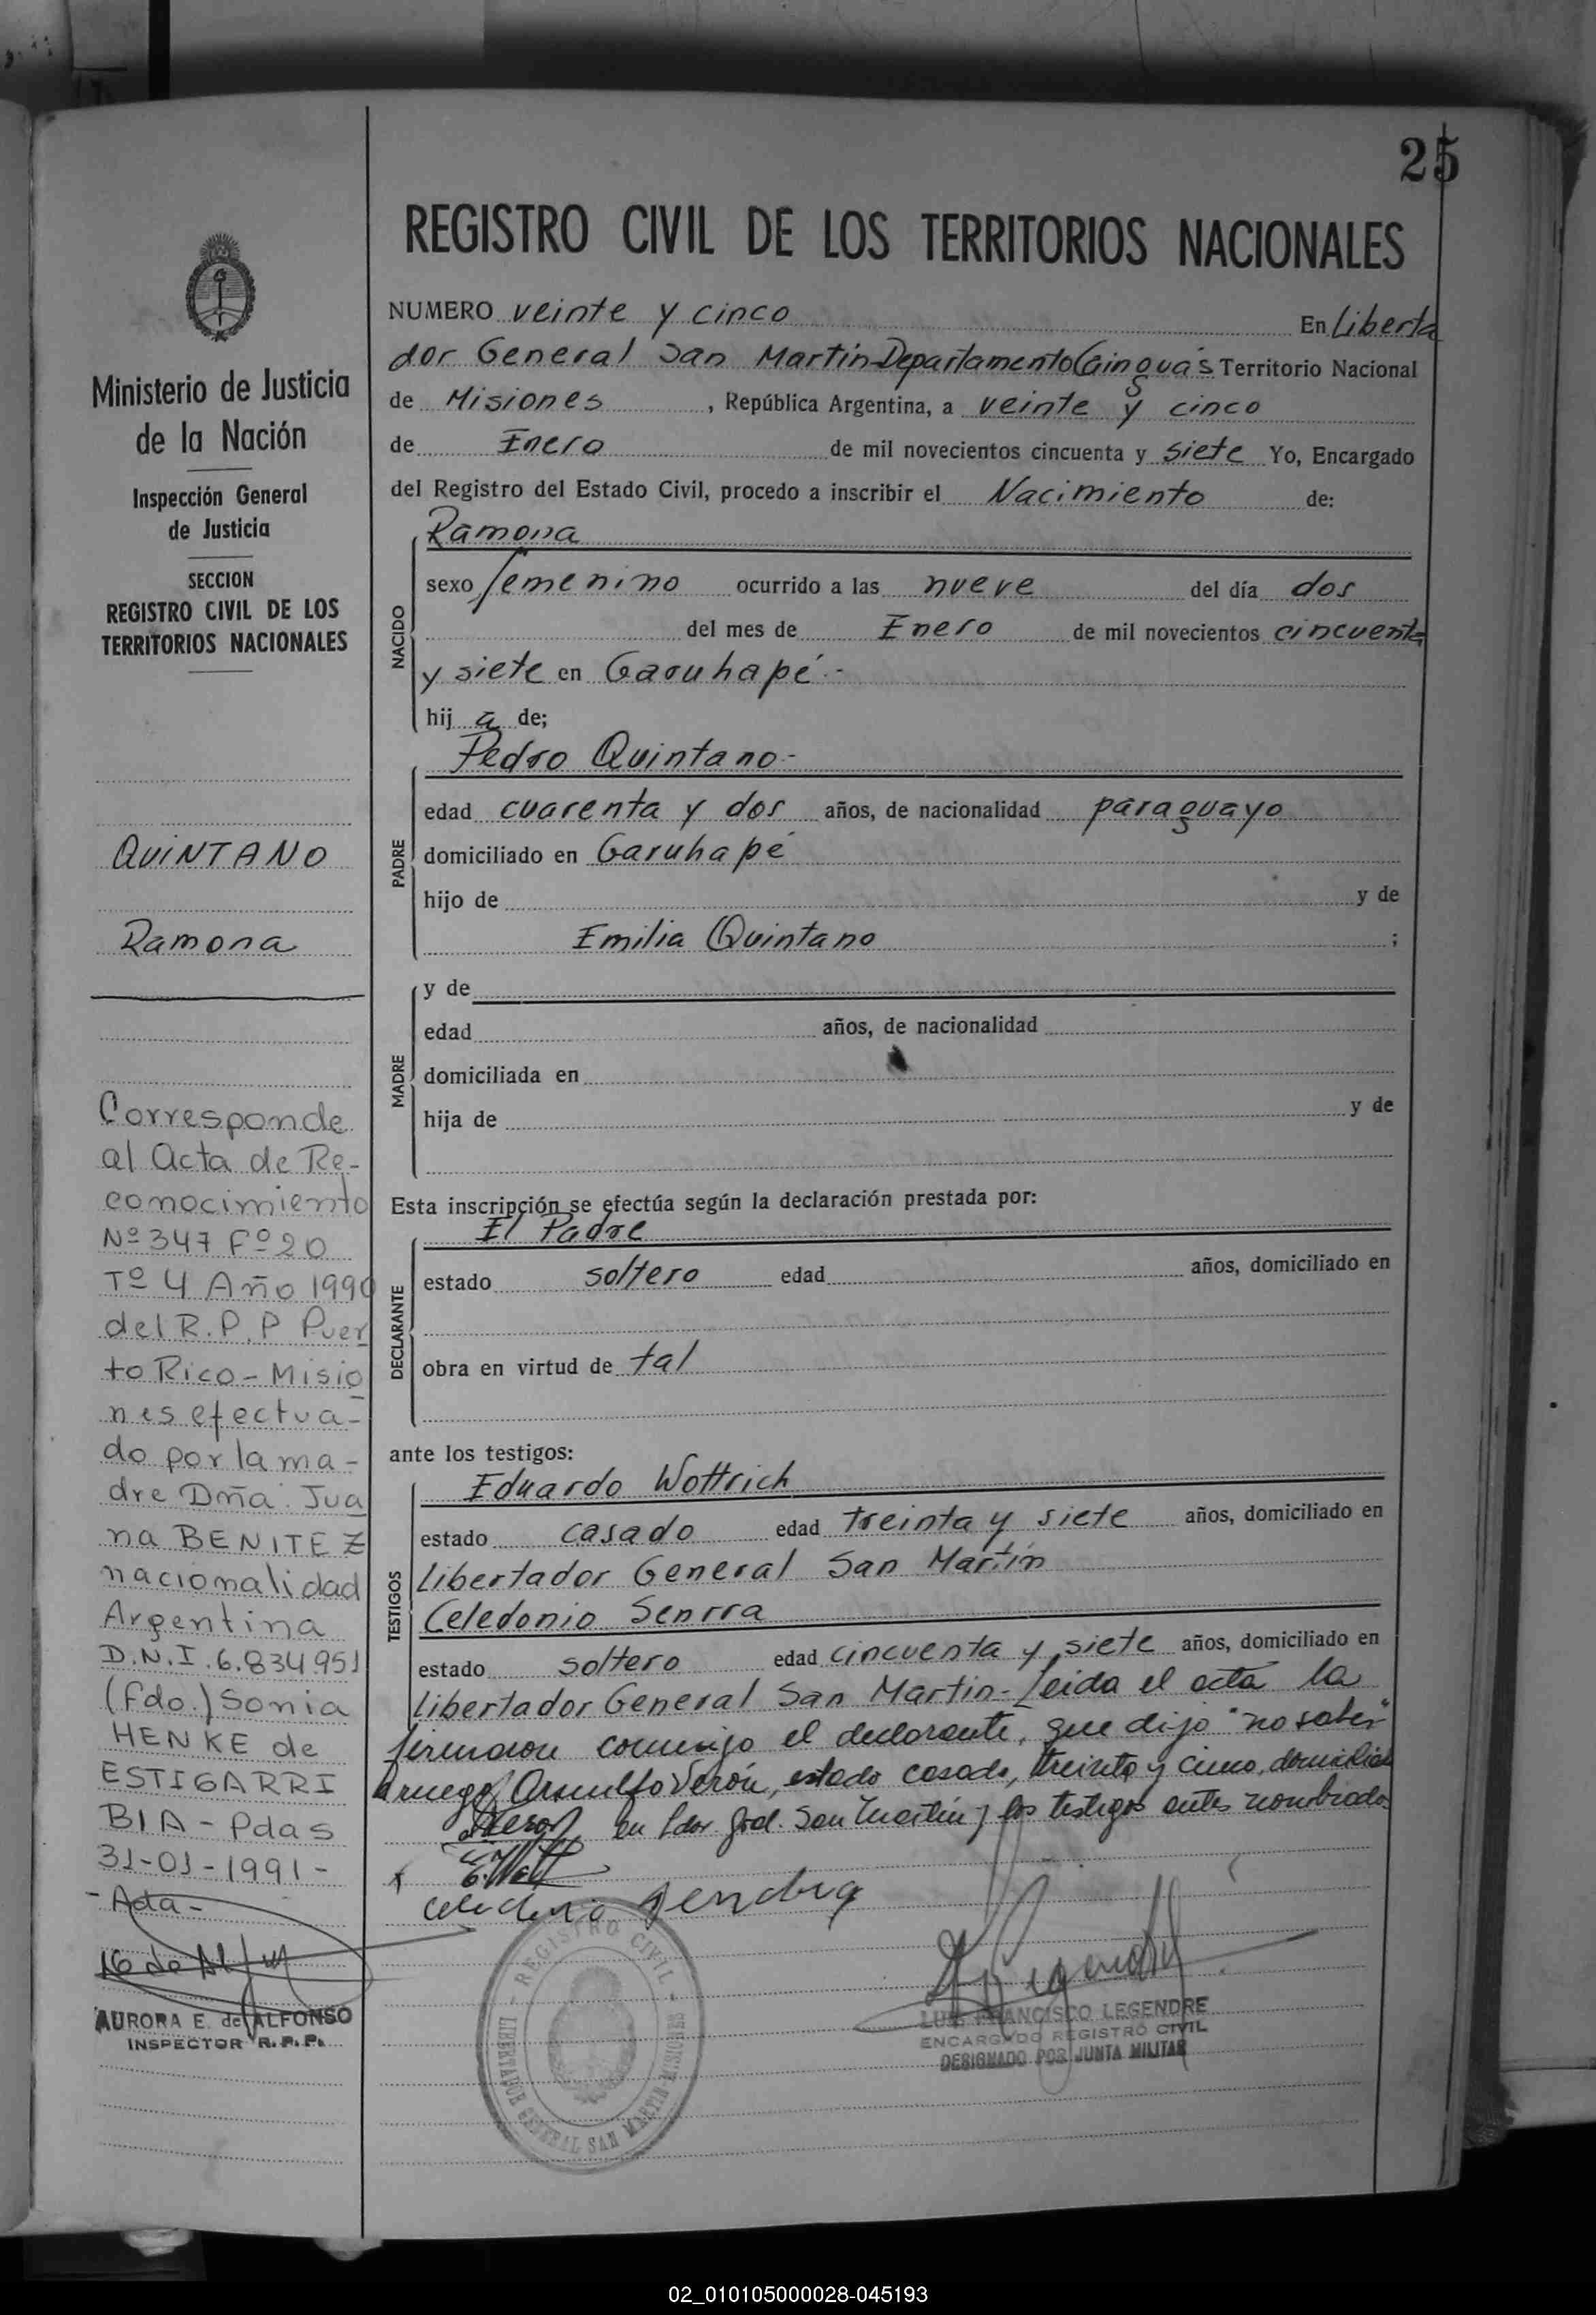 25
REGISTRO CIVIL DE LOS TERRITORIOS NACIONALES
Ministerio de Justicia
de la Nación
Inspección General
de Justicia
SECCION
REGISTRO CIVIL DE LOS
TERRITORIOS NACIONALES
QUINTANO
Ramona
Corresponde
al Acta de Re-
conocimiento
Nº 347 Fº 20
Tº 4 Año 1990
del R.P.P Puer
to Rico - Misio
nes efectua-
do por la ma-
dre Dña. Jua
na BENITEZ
nacionalidad
Argentina
D.N.I. 6.834.951
(fdo.) Sonia
HENKE de
ESTIGARRI
BIA - Pdas
31-01-1991-
- Ada -
AURORA E. de ALFONSO
INSPECTOR R.P.P.
NUMERO veinte y cinco En Liberta
dor General San Martín-Departamento Cainguás Territorio Nacional
de Misiones, República Argentina, a veinte y cinco
de Enero de mil novecientos cincuenta y siete Yo, Encargado
del Registro del Estado Civil, procedo a inscribir el Nacimiento de:
NACIDO
Ramona
sexo femenino ocurrido a las nueve del día dos
del mes de Enero de mil novecientos cincuenta
y siete en Garuhapé.-
hij a de;
PADRE
Pedro Quintano-
edad cuarenta y dos años, de nacionalidad paraguayo
domiciliado en Garuhapé
hijo de y de
Emilia Quintano ;
MADRE
y de
edad años, de nacionalidad
domiciliada en
hija de y de
Esta inscripción se efectúa según la declaración prestada por:
DECLARANTE
El Padre
estado soltero edad años, domiciliado en
obra en virtud de tal
ante los testigos:
TESTIGOS
Eduardo Wottrich
estado casado edad treinta y siete años, domiciliado en
Libertador General San Martín
Celedonio Senrra
estado soltero edad cincuenta y siete años, domiciliado en
Libertador General San Martin- Leida el acta la
firmaron conmigo el declarante, que dijo "no saber"
a ruego Arnulfo Verón, estado casado, treinta y cinco, domiciliado
en Ldor. Gral. San Martín y los testigos antes nombrados
REGISTRO CIVIL - LIBERTADOR GENERAL SAN MARTIN MISIONES
LUIS FRANCISCO LEGENDRE
ENCARGADO REGISTRO CIVIL
DESIGNADO POR JUNTA MILITAR
02_010105000028-045193